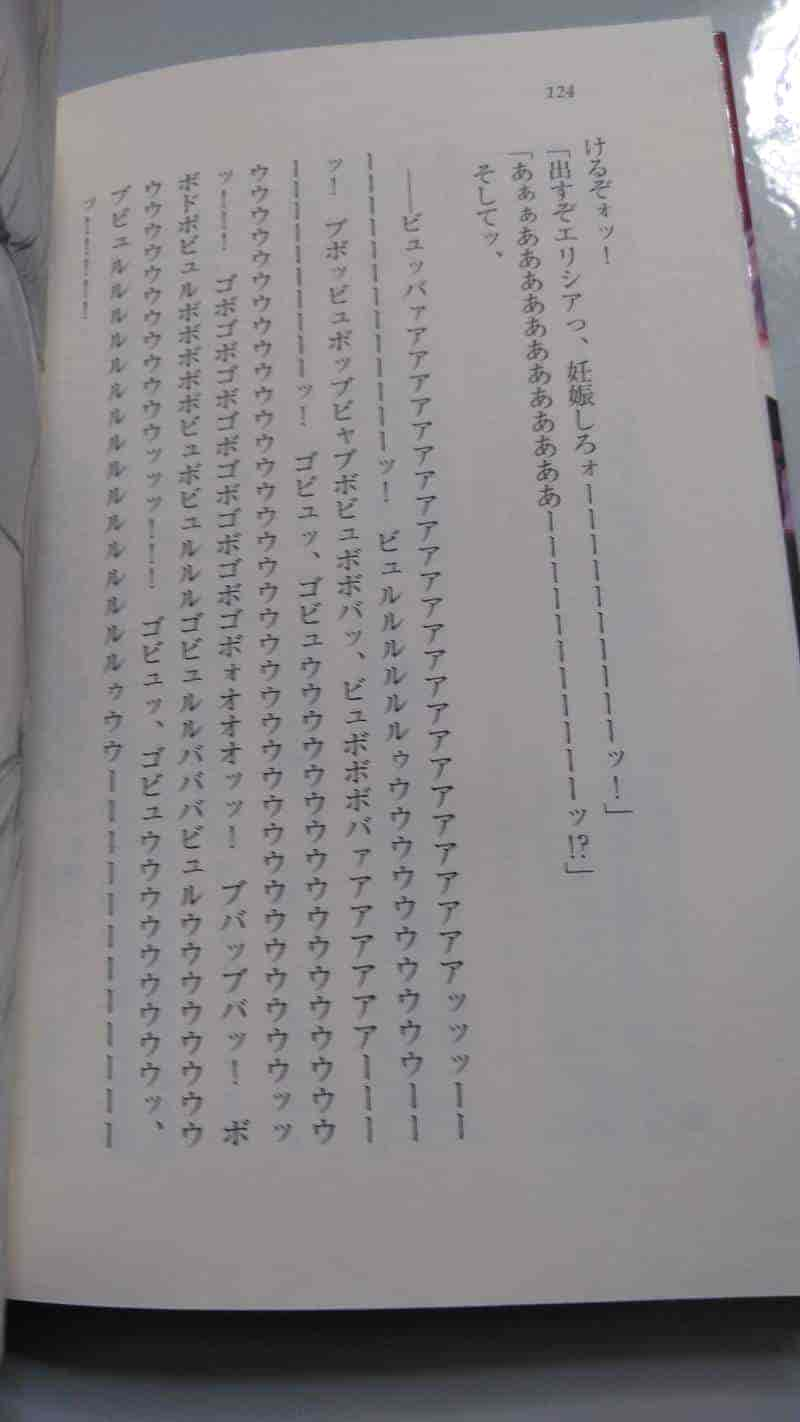 124
けるぞォッ！
「出すぞエリシアっ、妊娠しろォーーーーーーーーーーッ！」
「あぁぁああああああああああーーーーーーーーーーーッ!?」
そしてッ、
――ビュッバァアアアアアアアアアアアアアアアアアアアアアアアアアアアッッッーー
ーーーーーーーーーーーーッ！　ビュルルルルルゥウウウウウウウウウウーー
ッ！　ブボッビュボップビャブボビュボボバッ、ビュボボボバァアアアアアアーーー
ーーーーーーーーーッ！　ゴビュッ、ゴビュウウウウウウウウウウウウウウウウウ
ウウウウウウウウウウウウウウウウウウウウウウウウウウウウウウウウウウウッッ
ッ！ーー！　ゴボゴボゴボゴボゴボゴボゴボゴボォオオオッッ！　ブバップバッ！　ボ
ボドボビュルボボボボボビュボビュルルルゴビュルルバババビュルウウウウウウウウウ
ウウウウウウウウウウウッッッ！！！　ゴビュッ、ゴビュウウウウウウウウウウッ、
ブビュルルルルルルルルルルルルルルルルルゥウウーーーーーーーーーーーー
ッーーーーー！